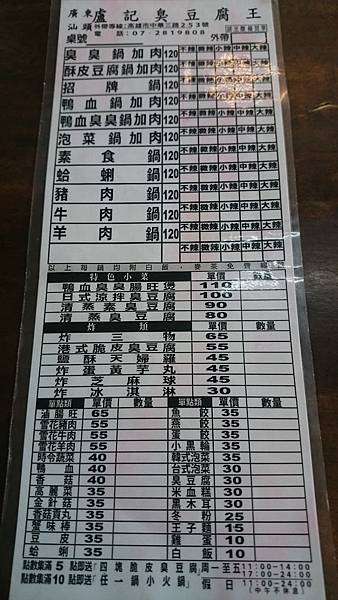 廣東 汕頭 盧記臭豆腐王
外帶專線:高雄市中華三路253號
電話:07-2819808
桌號 外帶
臭臭鍋加肉 120 不辣 微辣 小辣 中辣 大辣
酥皮豆腐鍋加肉 120 不辣 微辣 小辣 中辣 大辣
招牌鍋 120 不辣 微辣 小辣 中辣 大辣
鴨血鍋加肉 120 不辣 微辣 小辣 中辣 大辣
鴨血臭臭鍋加肉 120 不辣 微辣 小辣 中辣 大辣
泡菜鍋加肉 120 不辣 微辣 小辣 中辣 大辣
素食鍋 120 不辣 微辣 小辣 中辣 大辣
蛤蜊鍋 120 不辣 微辣 小辣 中辣 大辣
豬肉鍋 120 不辣 微辣 小辣 中辣 大辣
牛肉鍋 120 不辣 微辣 小辣 中辣 大辣
羊肉鍋 120 不辣 微辣 小辣 中辣 大辣
以上每鍋均附白飯,麥茶免費
特色小菜 單價 數量
鴨血臭臭腸旺煲 110
日式涼拌臭豆腐 100
清蒸素臭豆腐 90
清蒸臭豆腐 80
炸類 單價 數量
炸三物 65
港式脆皮臭豆腐 55
鹽酥天婦羅 45
炸蛋黃芋丸 45
炸芝麻球 45
炸冰淇淋 30
單點類 單價 數量 單點類 單價 數量
滷腸旺 65 魚餃 35
雪花豬肉 55 燕餃 35
雪花牛肉 55 蛋餃 35
雪花羊肉 55 小黑輪 35
時令蔬菜 40 韓式泡菜 35
鴨血 40 台式泡菜 30
香菇 40 臭豆腐 30
高麗菜 35 米血糕 30
金針菇 35 黑木耳 30
香菇貢丸 35 冬粉 25
蟹味棒 35 王子麵 15
豆皮 35 雞蛋 10
蛤蜊 35 白飯 10
點數集滿 5 點即送「四塊脆皮臭豆腐」 周一至五 11:00-14:00 17:00-24:00
點數集滿 10 點即送「任一鍋小火鍋」 假日 11:00-24:00
(中午不休息)